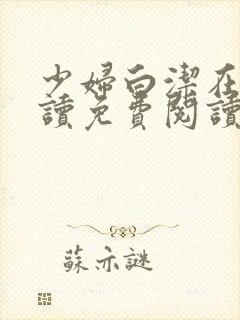 少婦白潔在
讀免費閱讀
蘇亦謎